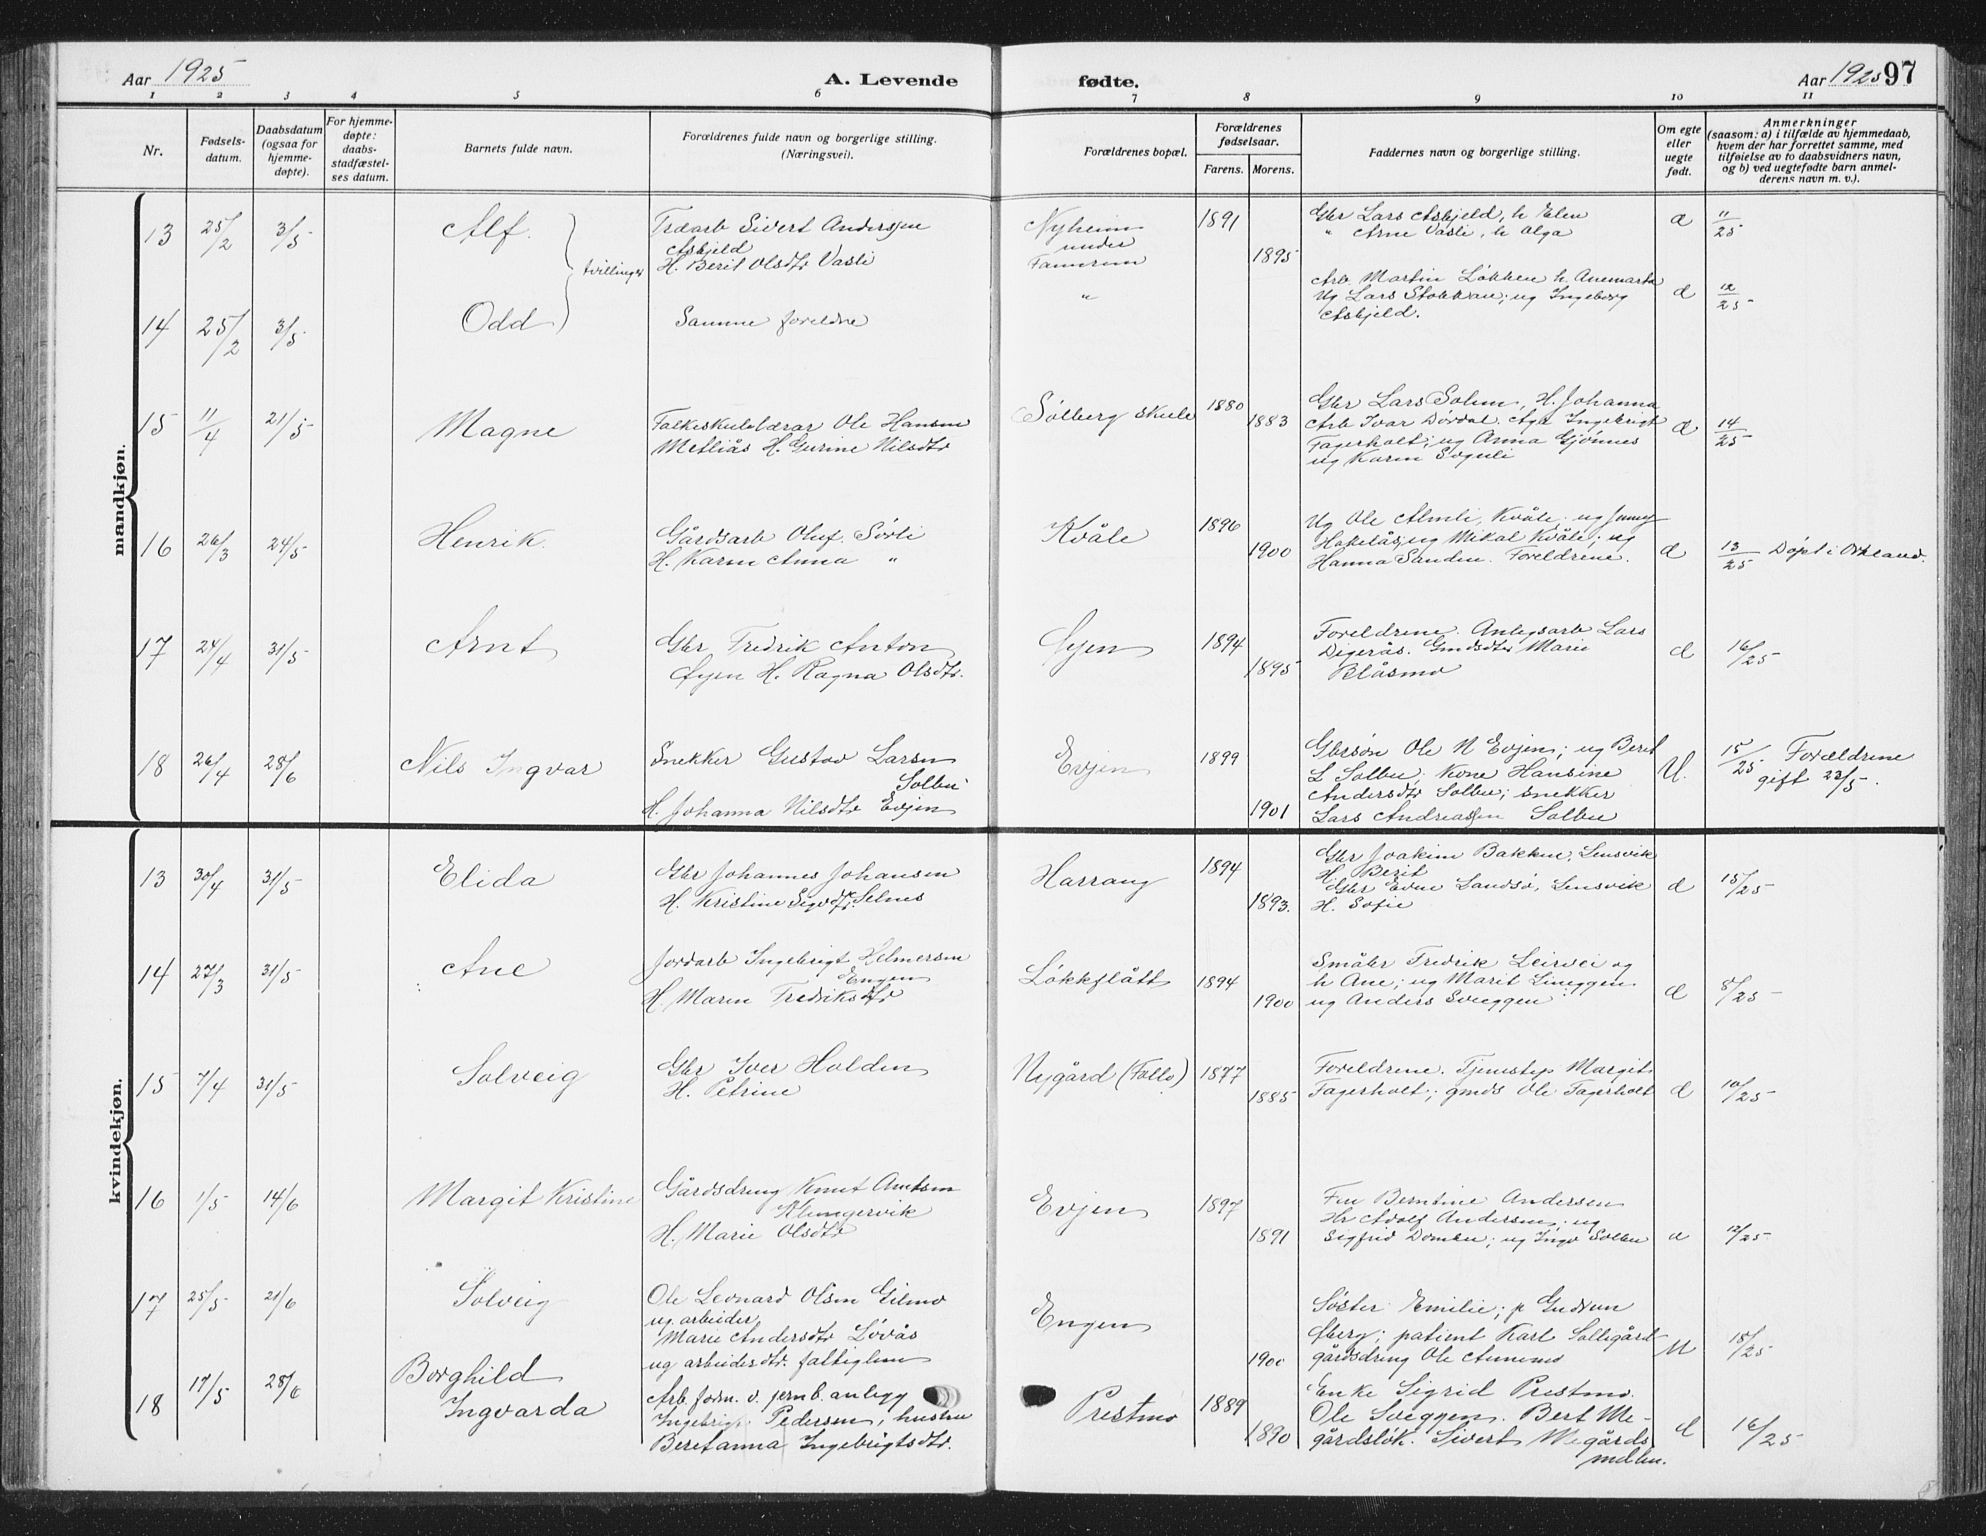 Aar 1925
A. Levende
fødte.
Aar 1925
97
1 2 3 4 5 6 7 8 9 10 11
Nr.
Fødsels-
datum.
Daabsdatum
(ogsaa for
hjemme-
døpte).
For hjemme-
døpte:
daabs-
stadfæstel-
ses datum.
Barnets fulde navn.
Forældrenes fulde navn og borgerlige stilling.
(Næringsvei).
Forældrenes bopæl.
Forældrenes
fødselsaar.
Farens. Morens.
Faddernes navn og borgerlige stilling.
Om egte
eller
uegte
født.
Anmerkninger
(saasom: a) i tilfælde av hjemmedaab,
hvem der har forrettet samme, med
tilføielse av to daabsvidners navn,
og b) ved uegtefødte barn anmel-
derens navn m. v.).
mandkjøn.
13 25/2 3/5 Alf.
tvillinger
Træarb Sivert Anderssen
Asbjeld
H. Berit Olsdtr Vasli
Nyheim
under
Fannrem
1891
1895
Gbr Lars Asbjeld, h Elen
" Arne Vasli, h Olga
a
11/25
14 25/2 3/5 Odd
Samme foreldre
"
Arb Martin Løkken h. Anemarta
Ug Lars Stokkan; ug Ingeborg
Asbjeld.
a
12/25
15 11/4 21/5 Magne
Folkeskulelærar Ole Hansen
Metliås H. Gurine Nilsdtr
Sølberg skule
1880
1883
Gbr Lars Solem, H. Johanna
Arb Ivar Dørdal. Aga Ingebrigt
Fagerholt; ug Anna Gjønnes
ug Karen Svguli
a
14/25
16 26/3 24/5 Henrik.
Gårdsarb Oluf Sørli
H. Karen Anna "
Kvåle
1896
1900
Ug Ole Almli, Kvåle; ug Jenny
Hakelås; ug Mikal Kvåle; ug
Hanna Sanden. Foreldrene.
a
13/25 Døpt i Orkland.
17 24/4 31/5 Arnt
Gbr Fredrik Anton
Øyen H. Ragna Olsdtr.
Øyen
1894
1895
Foreldrene. Anlegsarb Lars
Digerås. Gmdsdtr Marie
Blåsmo
a
16/25
18 26/4 28/6 Nils Ingvar
Snekker Gustav Larsen
Solbu
H. Johanna Nilsdtr Evjen
Evjen
1899
1901
Gbrsøn Ole N Evjen; ug Berit
L Solbu; Kone Hansine
Andersdtr Solbu; snekker
Lars Andreassen Solbu
U.
15/25 Forældrene
gift 23/5.
kvindekjøn.
13 30/4 31/5 Elida
Gbr Johannes Johansen
H. Kristine Sigvdtr. Selnes
Harrang
1894
1893.
Gbr Joakim Bakken, Lensvik
H. Berit
Gbr Even Landsø, Lensvik
H. Sofie
a
15/25
14 27/3 31/5 Ane
Jordarb Ingebrigt Helmersen
Engen
H. Maren Fredriksdtr
Løkkflått
1894
1900
Småbr Fredrik Leirvei og
h Ane; ug Marit Lineggen
ug Anders Sveggen
a
8/25
15 7/4 31/5 Solveig
Gbr Iver Holden
H. Petrine
Nygård (Follo)
1877
1885
Foreldrene. Tjenstep Margit
Fagerholt; gmds Ole Fagerholt
a
10/25
16 1/5 14/6 Margit Kristine
Gårdsdreng Knut Arntsen
Klungervik
H. Marie Olsdtr
Evjen
1897
1891
Fru Berntine Andersen
Hr Adolf Andersen; ug
Sigfrid Domben; ug Inga Solbu
a
12/25
17 25/5 21/6 Solveig
Ole Leonard Olsen Gilmo
ug. arbeider
Marie Andersdtr Løvås
ug arbeidersdtr. faltiglem
Engen
1900
Søster Emilie; p Gudrun
Øberg; patient Karl Sollegård
gårdsdreng Ole Annemo
U
15/25
18 17/5 28/6 Borghild
Ingvarda
Arb. form. v. jernb. anlegg
Ingebrigt Pedersen, hustru
Beret anna Ingebrigtsdtr.
Prestmo
1889
1890
Enke Sigrid Prestmo.
Ole Sveggen. Bert Me-
gårdsløk. Sivert Megårds
mellen.
a
16/25